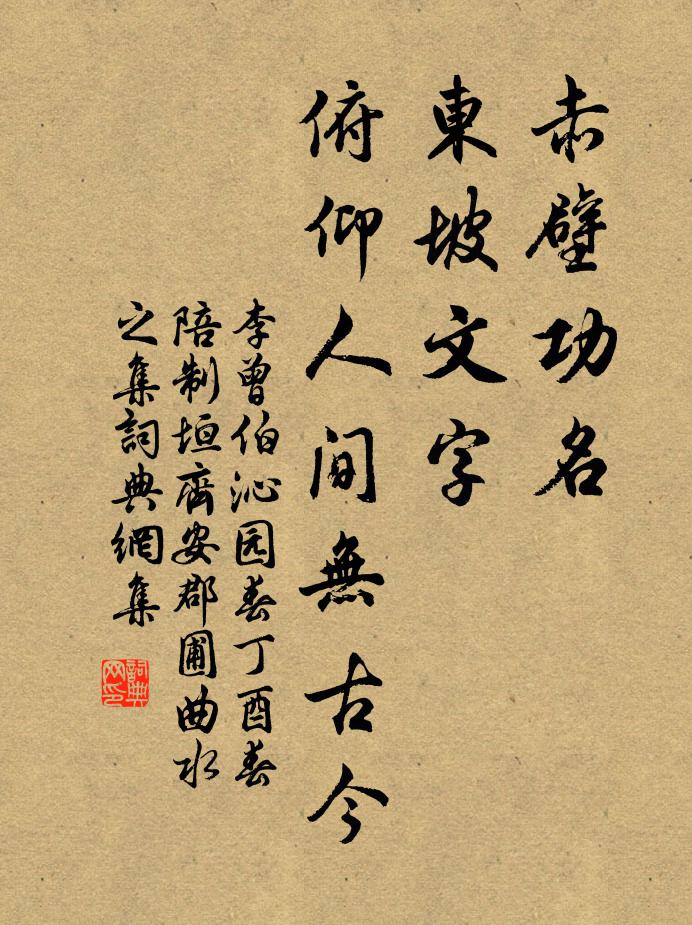 赤壁功名
東坡文字
俯仰人间無古今
李曾伯沁园春丁酉春
陪制垣齊安郡圃曲水
之集詞典網集
詞典
网印